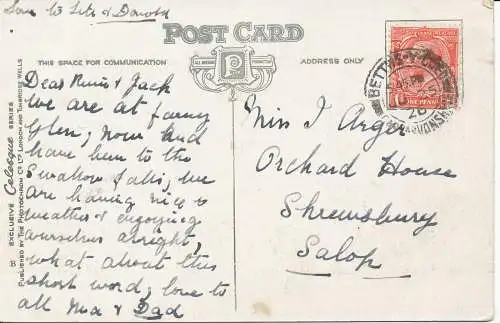 Love to Lets & Donald
POST CARD
THIS SPACE FOR COMMUNICATION
ADDRESS ONLY
Dear Mums & Jack
We are at fairy
Glen, now and
have been to the
Swallow falls, we
are having nice
weather & enjoying
ourselves alright,
what about this
short word, love to
all Ma & Dad
Miss I Arger
Orchard House
Shrewsbury
Salop
EXCLUSIVE Celesque SERIES
PUBLISHED BY THE PHOTOCHROM CO LTD LONDON AND TUNBRIDGE WELLS
BETTWS-Y-COED
ONE PENNY